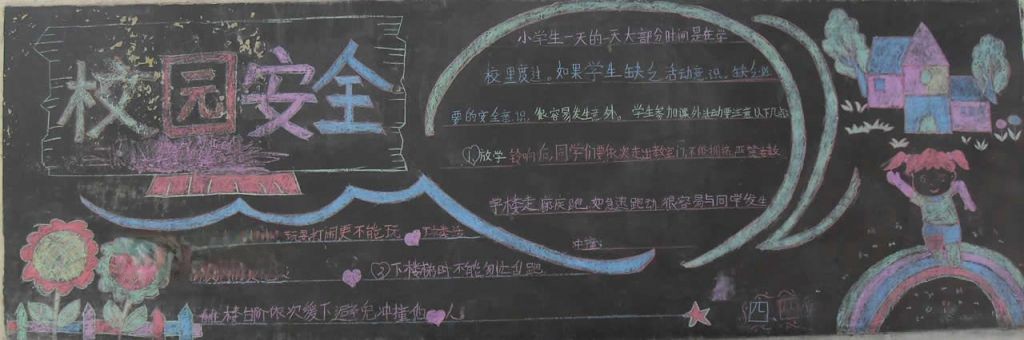 校园安全
小学生一天的一天大部分时间是在学
校里度过。如果学生缺乏活动意识,缺乏必
要的安全意识,很容易发生意外。学生参加课外活动要注意以下几点
①放学铃响后,同学们要依次走出教室门,不能拥挤,严禁在教
学楼走廊疾跑,如急速跑动很容易与同学发生
冲撞。
玩耍打闹更不能玩
②下楼梯时不能勾肩搭跑
楼台阶依次缓下避免冲撞他人
四、四